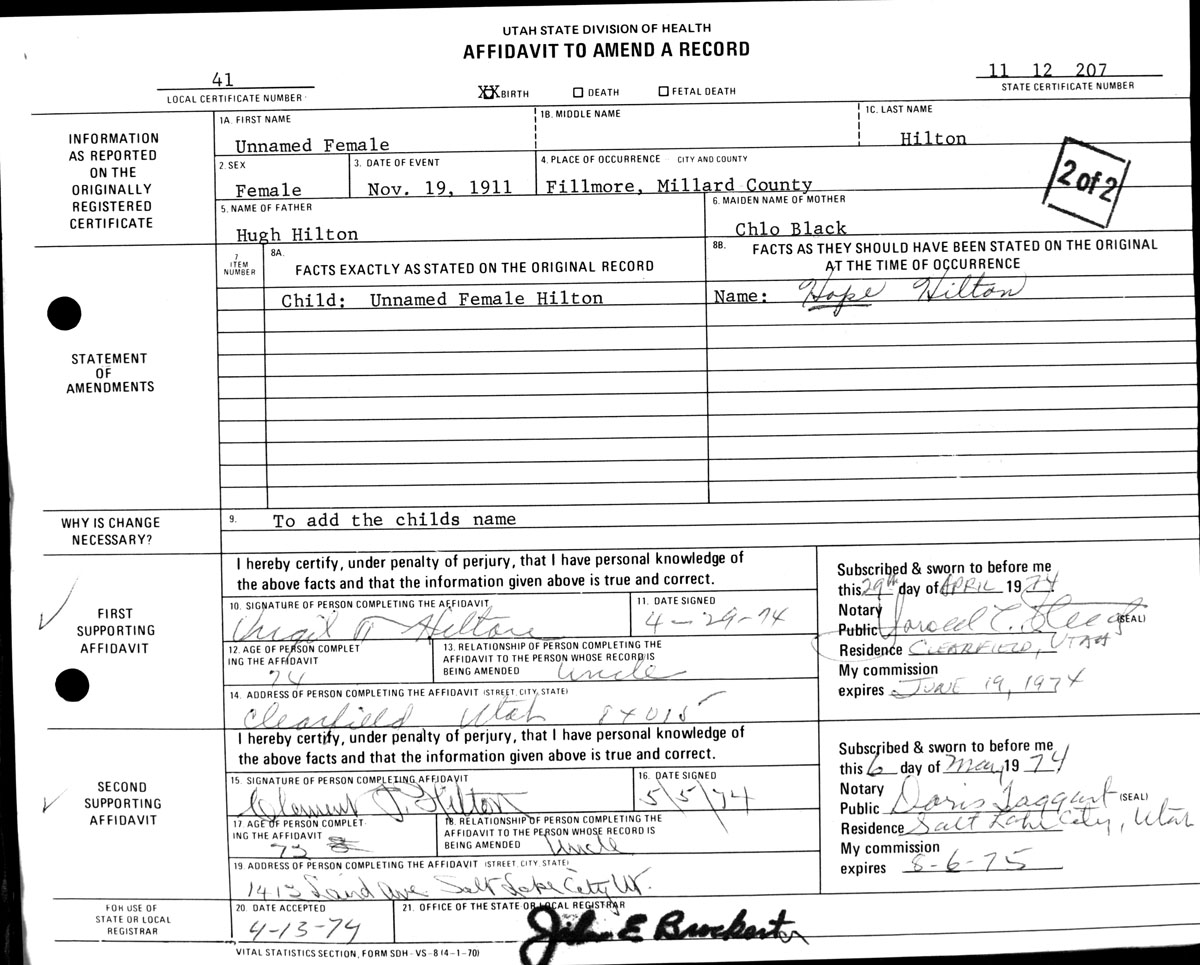 UTAH STATE DIVISION OF HEALTH
AFFIDAVIT TO AMEND A RECORD
41
LOCAL CERTIFICATE NUMBER
XX BIRTH
DEATH
FETAL DEATH
11 12 207
STATE CERTIFICATE NUMBER
INFORMATION
AS REPORTED
ON THE
ORIGINALLY
REGISTERED
CERTIFICATE
1A. FIRST NAME
Unnamed Female
1B. MIDDLE NAME
1C. LAST NAME
Hilton
2. SEX
Female
3. DATE OF EVENT
Nov. 19, 1911
4. PLACE OF OCCURRENCE - CITY AND COUNTY
Fillmore, Millard County
2 of 2
5. NAME OF FATHER
Hugh Hilton
6. MAIDEN NAME OF MOTHER
Chlo Black
STATEMENT
OF
AMENDMENTS
7
ITEM
NUMBER
8A.
FACTS EXACTLY AS STATED ON THE ORIGINAL RECORD
8B.
FACTS AS THEY SHOULD HAVE BEEN STATED ON THE ORIGINAL
AT THE TIME OF OCCURRENCE
Child: Unnamed Female Hilton
Name: Hope Hilton
WHY IS CHANGE
NECESSARY?
9. To add the childs name
FIRST
SUPPORTING
AFFIDAVIT
I hereby certify, under penalty of perjury, that I have personal knowledge of
the above facts and that the information given above is true and correct.
10. SIGNATURE OF PERSON COMPLETING THE AFFIDAVIT
Virgil Hilton
11. DATE SIGNED
4-29-74
12. AGE OF PERSON COMPLET
ING THE AFFIDAVIT
74
13. RELATIONSHIP OF PERSON COMPLETING THE
AFFIDAVIT TO THE PERSON WHOSE RECORD IS
BEING AMENDED Uncle
14. ADDRESS OF PERSON COMPLETING THE AFFIDAVIT (STREET, CITY, STATE)
Clearfield Utah 84015
Subscribed & sworn to before me
this 29th day of APRIL 1974
Notary
Public (SEAL)
Residence CLEARFIELD, UTAH
My commission
expires JUNE 19, 1974
SECOND
SUPPORTING
AFFIDAVIT
I hereby certify, under penalty of perjury, that I have personal knowledge of
the above facts and that the information given above is true and correct.
15. SIGNATURE OF PERSON COMPLETING AFFIDAVIT
Clement Hilton
16. DATE SIGNED
5/5/74
17. AGE OF PERSON COMPLET
ING THE AFFIDAVIT
73
18. RELATIONSHIP OF PERSON COMPLETING THE
AFFIDAVIT TO THE PERSON WHOSE RECORD IS
BEING AMENDED Uncle
19. ADDRESS OF PERSON COMPLETING THE AFFIDAVIT (STREET, CITY, STATE)
1413 Laird Ave. Salt Lake City Ut.
Subscribed & sworn to before me
this 6 day of May, 1974
Notary
Public Doris Taggart (SEAL)
Residence Salt Lake City, Utah
My commission
expires 8-6-75
FOR USE OF
STATE OR LOCAL
REGISTRAR
20. DATE ACCEPTED
4-13-74
21. OFFICE OF THE STATE OR LOCAL REGISTRAR
John E Brockert
VITAL STATISTICS SECTION, FORM SDH-VS-8 (4-1-70)